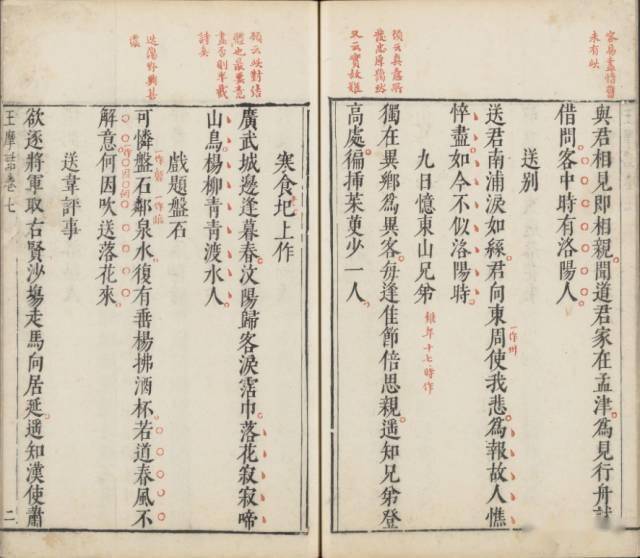 未有此
又云實故難
與君相見即相親聞道君家在孟津為見行舟試
借問客中時有洛陽人
送別
送君南浦淚如絲君向東周使我悲為報故人憔
一作州
悴盡如今不似洛陽時
九日憶東山兄弟
年十七時作
獨在異鄉為異客每逢佳節倍思親遙知兄弟登
高處徧插茱萸少一人
顧云此對結
體也最要意
盡否則半截
詩矣
寒食圯上作
廣武城邊逢暮春汶陽歸客淚霑巾落花寂寂啼
山鳥楊柳青青渡水人
戲題盤石
可憐盤石鄰泉水復有垂楊拂酒杯若道春風不
解意何因吹送落花來
送韋評事
欲逐將軍取右賢沙場走馬向居延遙知漢使蕭
王摩詰卷七 二